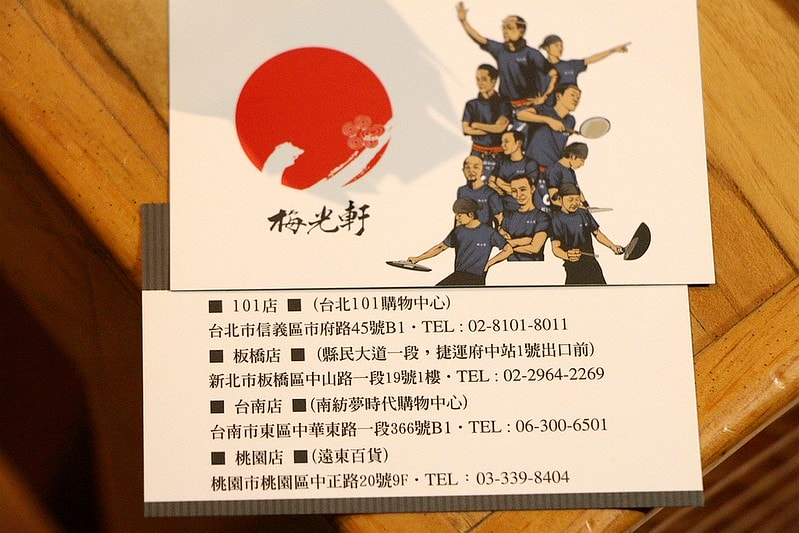 梅光軒
■ 101店 ■ (台北101購物中心)
台北市信義區市府路45號B1・TEL : 02-8101-8011
■ 板橋店 ■ (縣民大道一段，捷運府中站1號出口前)
新北市板橋區中山路一段19號1樓・TEL : 02-2964-2269
■ 台南店 ■(南紡夢時代購物中心)
台南市東區中華東路一段366號B1・TEL : 06-300-6501
■ 桃園店 ■(遠東百貨)
桃園市桃園區中正路20號9F・TEL：03-339-8404